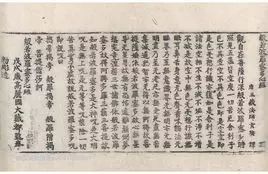 般若波羅蜜多心經
唐三藏法師玄奘 詔譯
觀自在菩薩行深般若波羅蜜多時
照見五蘊皆空度一切苦厄舍利子
色不異空空不異色色即是空空即
是色受想行識亦復如是舍利子是
諸法空相不生不滅不垢不淨不增
不減是故空中無色無受想行識無
眼耳鼻舌身意無色聲香味觸法無
眼界乃至無意識界無無明亦無無
明盡乃至無老死亦無老死盡無苦
集滅道無智亦無得以無所得故菩
提薩埵依般若波羅蜜多故心無罣
礙無罣礙故無有恐怖遠離顛倒夢
想究竟涅槃三世諸佛依般若波羅
蜜多故得阿耨多羅三藐三菩提故
知般若波羅蜜多是大神呪是大明
呪是無上呪是無等等呪能除一切
苦真實不虛故說般若波羅蜜多呪
即說呪曰
揭帝揭帝 般羅揭帝 般羅僧揭帝
菩提僧莎訶
般若波羅蜜多心經
戊戌歲高麗國大藏都監奉
勅雕造